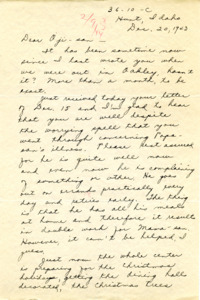 36-10-C
Hunt, Idaho
Dec. 20, 1943
Dear Oji-san —
It has been sometime now
since I last wrote you when
we were out in Oakley, hasn't
it? More than a month to be
exact.
Just received today your letter
of Dec. 15 and I'm glad to hear
that you are well despite
the worrying spell that you
went through concerning Papa-
san's illness. Please rest assured
for he is quite well now
and even now he is complaining
of something or other. He goes
out on errands practically every
day and retires early. The thing
is that he has all his meals
at home and therefore it results
in double work for Mama-san.
However, it can't be helped, I
guess.
Just now the whole center
is preparing for the Christmas
holidays getting the dining halls
decorated, the Christmas trees